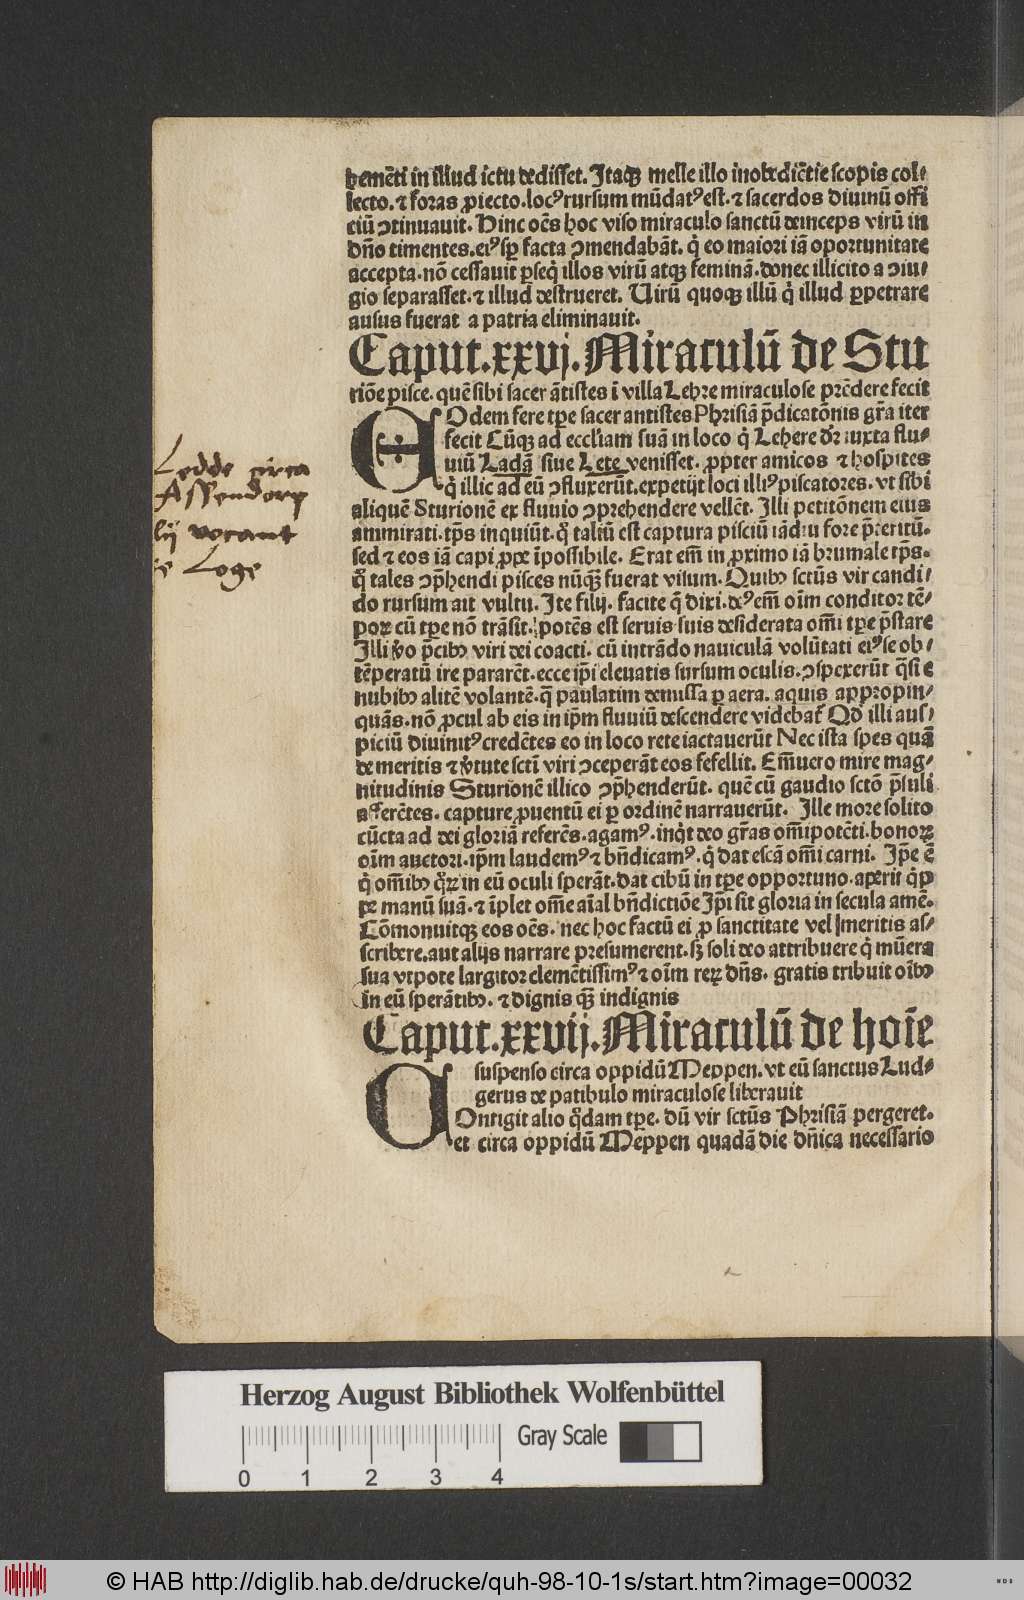 vemēti in illud ictu dedisset. Itaqꝫ melle illo inobediētie scopis col⸗
lecto. ⁊ foras ꝓiecto. locꝰ rursum mūdatꝰ est. ⁊ sacerdos diuinū offi
ciū ↄtinuauit. Hinc oēs hoc viso miraculo sanctū deinceps virū in
dn̄o timentes. eiꝰ sꝑ facta ↄmendabāt. q̇ eo maiori iā oportunitate
accepta. nō cessauit ꝑseq̇ illos virū atqꝫ feminā. donec illicito a ↄiu⸗
gio separasset. ⁊ illud destrueret. Uirū quoqꝫ illū q̇ illud ꝑpetrare
ausus fuerat a patria eliminauit.
Caput. xxvj. Miraculū de Stu
riōe pisce. quē sibi sacer ātistes ī villa Lehre miraculose prēdere fecit
EOdem fere tꝑe sacer antistes Phrisiā p̄dicatōnis gr̄a iter
fecit Cūqꝫ ad eccl'iam suā in loco q̇ Lehere dr̄ iuxta flu⸗
uiū Ladā siue Lete venisset. ꝓpter amicos ⁊ hospites
q̇ illic ad eū ↄfluxerūt. expetijt loci illiꝰ piscatores. vt sibi
aliquē Sturionē ex fluuio ↄprehendere vellēt. Illi petitōnem eius
ammirati. tp̄s inquiūt. q̊ taliū est captura pisciū iādiu fore p̄teritū.
sed ⁊ eos iā capi ꝓpe īpossibile. Erat em̄ in ꝓximo iā brumale tp̄s.
q̊ tales ↄp̄hendi pisces nūqꝫ̄ fuerat visum. Quibꝫ sctūs vir candi⸗
do rursum ait vultu. Ite filij. facite q̄ dixi. deꝰ em̄ oīm conditor tē⸗
poꝝ cū tꝑe nō trāsit. potēs est seruis suis desiderata om̄i tꝑe p̄stare
Illi ꝟo p̄cibꝫ viri dei coacti. cū intrādo nauiculā volūtati eiꝰ se ob⸗
tēperatū ire pararēt. ecce ip̄i eleuatis sursum oculis. ↄspexerūt q̄si e
nubibꝫ alitē volantē. q̄ paulatim demissa ꝑ aera. aquis appropin⸗
quās. nō ꝓcul ab eis in ip̄m fluuiū descendere videbat᷑ Qd̄ illi aus⸗
piciū diuinitꝰ credētes eo in loco rete iactauerūt Nec ista spes quā
de meritis ⁊ ꝟtute sctī viri ↄceperāt eos fefellit. Em̄uero mire mag⸗
nitudinis Sturionē illico ↄp̄henderūt. quē cū gaudio sctō p̄suli
afferētes. capture ꝓuentū ei ꝑ ordinē narrauerūt. Ille more solito
cūcta ad dei gloriā referēs. agamꝰ. inq̇t deo gr̄as om̄ipotēti. bonoꝝ
oīm auctori. ip̄m laudemꝰ ⁊ bn̄dicamꝰ. q̇ dat escā om̄i carni. Ip̄e ē
q̇ om̄ibꝫ q̊ꝝ in eū oculi sperāt. dat cibū in tꝑe opportuno. aperit q̇p
pe manū suā. ⁊ īplet om̄e aīal bn̄dictiōe Ip̄i sit gloria in secula amē.
Cōmonuitqꝫ eos oēs. nec hoc factū ei ꝓ sanctitate vel meritis as⸗
scribere. aut alijs narrare presumerent. sꝫ soli deo attribuere q̇ mūera
sua vtpote largitor clemētissimꝰ ⁊ oīm reꝝ dn̄s. gratis tribuit oībꝫ
in eū sperātibꝫ. ⁊ dignis qꝫ̄ indignis
Caput. xxvij. Miraculū de hoīe
suspenso circa oppidū Meppen. vt eū sanctus Lud⸗
gerus de patibulo miraculose liberauit
COntigit alio q̊dam tꝑe. dū vir sctūs Phrisiā pergeret.
et circa oppidū Meppen quadā die dn̄ica necessario
Ledde circa
Assendorp
lij vocant
ie Loge
Herzog August Bibliothek Wolfenbüttel
Gray Scale
0 1 2 3 4
© HAB http://diglib.hab.de/drucke/quh-98-10-1s/start.htm?image=00032